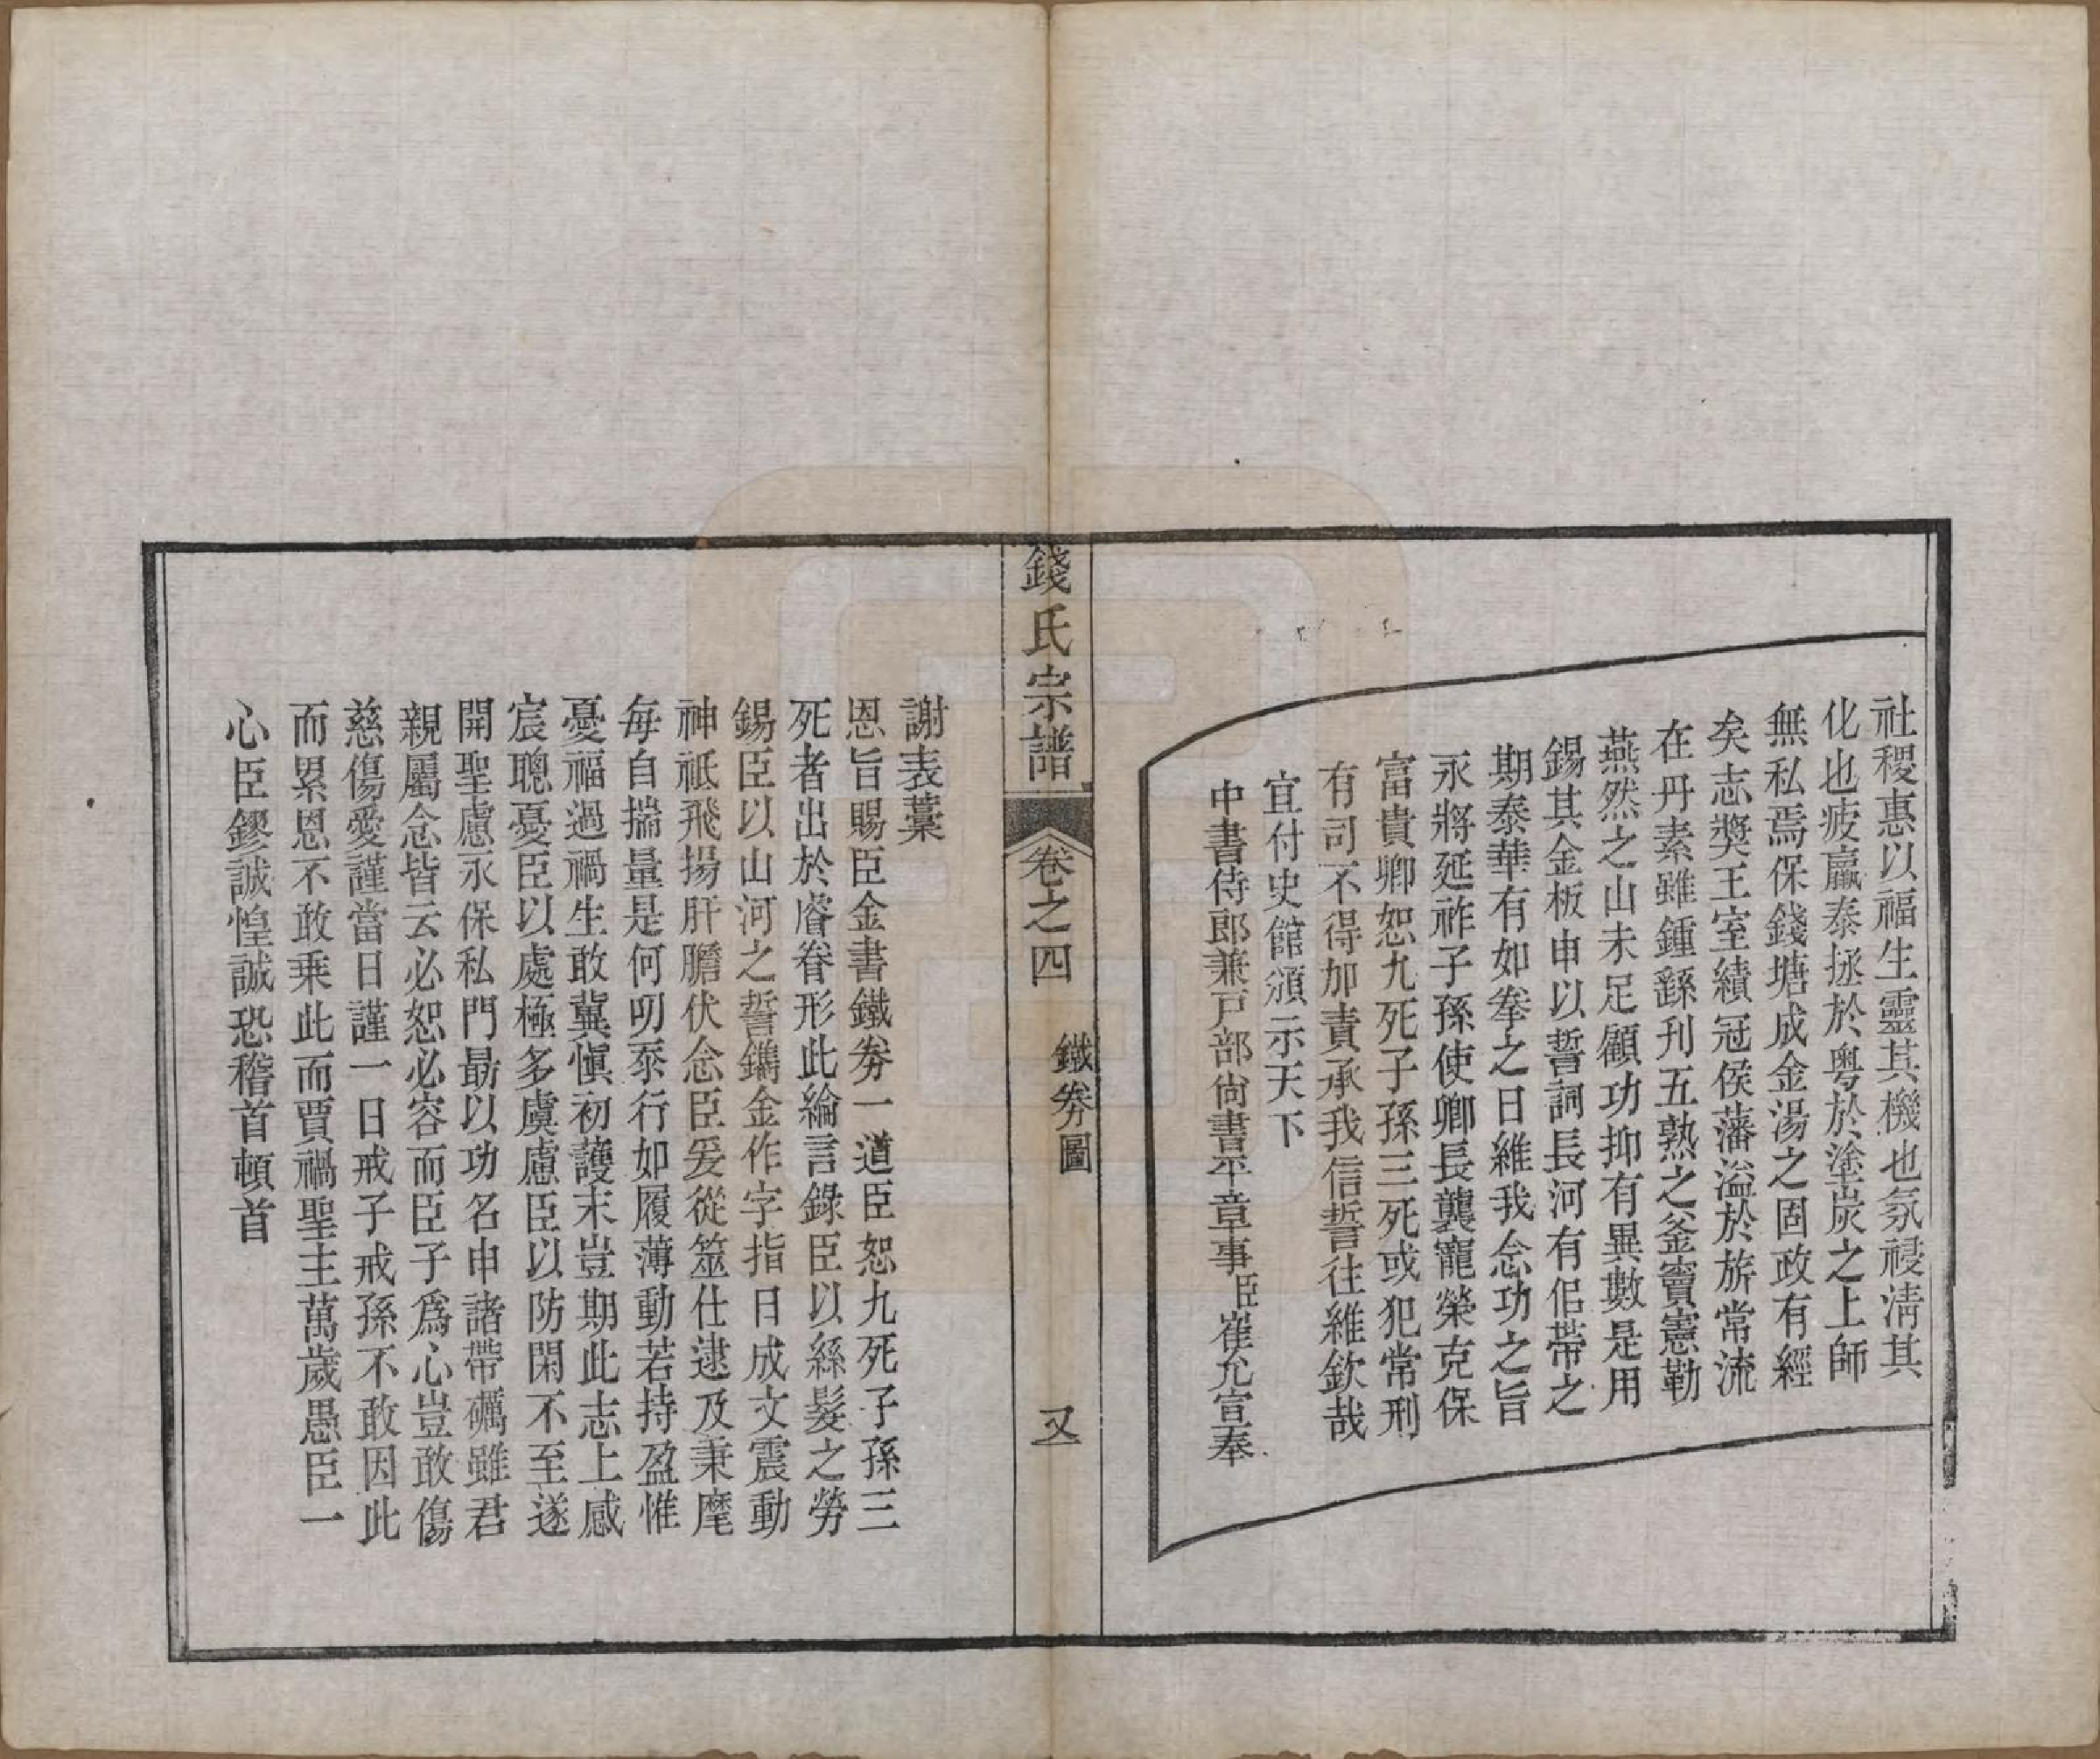 社稷惠以福生靈其機也氛祲淸其
化也疲羸泰拯於粤於塗炭之上師
無私焉保錢塘成金湯之固政有經
矣志奬王室績冠侯藩溢於旂常流
在丹素雖鍾繇刊五熟之釜竇憲勒
燕然之山未足顧功抑有異數是用
錫其金板申以誓詞長河有侣帶之
期泰華有如拳之日維我念功之旨
永將延祚子孫使卿長襲寵榮克保
富貴卿恕九死子孫三死或犯常刑
有司不得加責承我信誓往維欽哉
宜付史館頒示天下
中書侍郎兼戸部尙書平章事臣崔允宣奉
錢氏宗譜
卷之四
鐵劵圖
又一
謝表藁
恩旨賜臣金書鐵劵一道臣恕九死子孫三
死者出於睿眷形此綸言錄臣以絲髮之勞
錫臣以山河之誓鐫金作字指日成文震動
神祗飛揚肝膽伏念臣爰從筮仕逮及秉麾
每自揣量是何叨忝行如履薄動若持盈惟
憂福過禍生敢冀愼初護末豈期此志上感
宸聰憂臣以處極多虞慮臣以防閑不至遂
開聖慮永保私門勗以功名申諸帶礪雖君
親屬念皆云必恕必容而臣子爲心豈敢傷
慈傷愛謹當日謹一日戒子戒孫不敢因此
而累恩不敢乘此而賈禍聖主萬歲愚臣一
心臣鏐誠惶誠恐稽首頓首